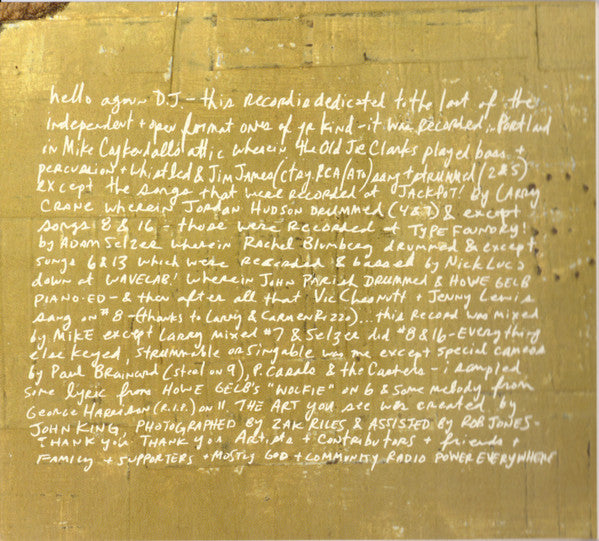 hello again D.J - this record is dedicated to the last of the
independent + open format ones of yr kind - it was recorded in Portland
in Mike Coykendalls attic wherein the Old Joe Clarks played bass +
percussion + whistled & Jim James (ctsy. RCA/ATO) sang + drummed (2 & 5)
except the songs that were recorded at JACKPOT! by LARRY
CRANE wherein JORDAN HUDSON DRUMMED (4 & 7) & except
songs 8 & 16 - those were recorded at TYPE FOUNDRY!
by ADAM SELZER wherein Rachel Blumberg drummed & except
songs 6 & 13 which were recorded & bassed by Nick Luca
down at WAVELAB! wherein JOHN PARISH DRUMMED & HOWE GELB
PIANO-ED - & then after all that Vic Chesnutt + Jenny Lewis
sang on #8 - (thanks to Larry & CARMEN RIZZO)... this record was mixed
by MIKE except Larry mixed #7 & Selzer did #8 & 16 - Everything
else keyed, strummable or singable was me except special cameos
by Paul Brainard (steel on 9), P. & the Cashers - i sampled
some lyric from HOWE GELB'S "WOLFIE" on 6 & some melody from
GEORGE HARRISON (R.I.P.) on 11. THE ART you see was created by
JOHN KING, PHOTOGRAPHED BY ZAK RILES & ASSISTED BY ROB JONES -
THANK YOU THANK YOU Artists + contributors + friends +
FAMILY + SUPPORTERS + MOSTLY GOD + COMMUNITY RADIO POWER EVERYWHERE